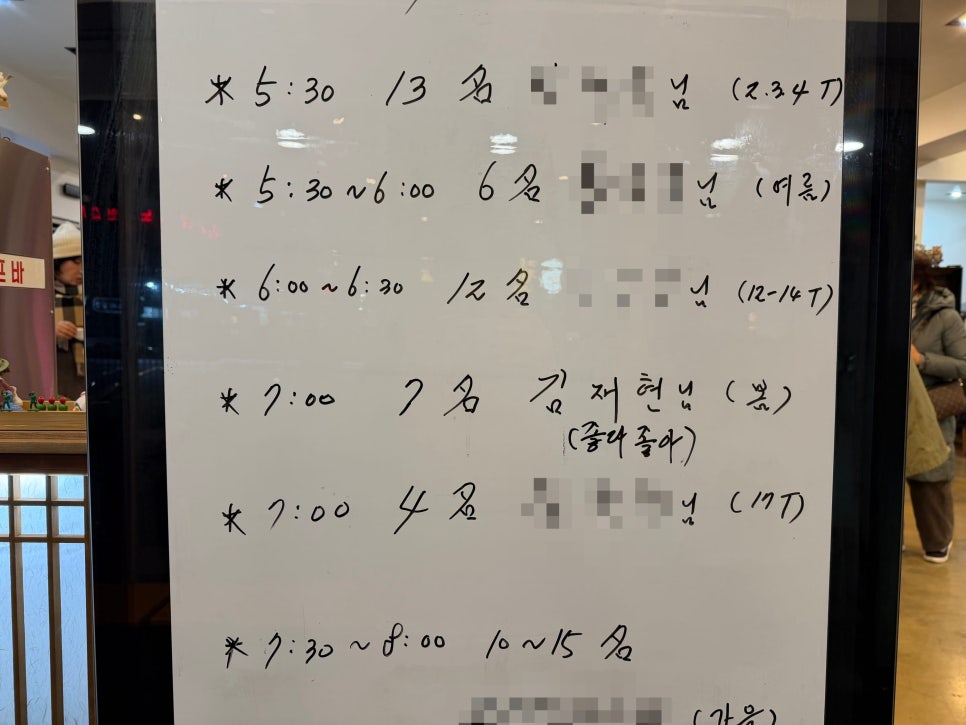 * 5:30 13 名 님 (2.3.4 T)
* 5:30 ~ 6:00 6 名 님 (여름)
* 6:00 ~ 6:30 12 名 님 (12-14 T)
* 7:00 7 名 김재현님 (봄)
(좋다 좋아)
* 7:00 4 名 님 (17 T)
* 7:30 ~ 8:00 10 ~ 15 名
(가을)